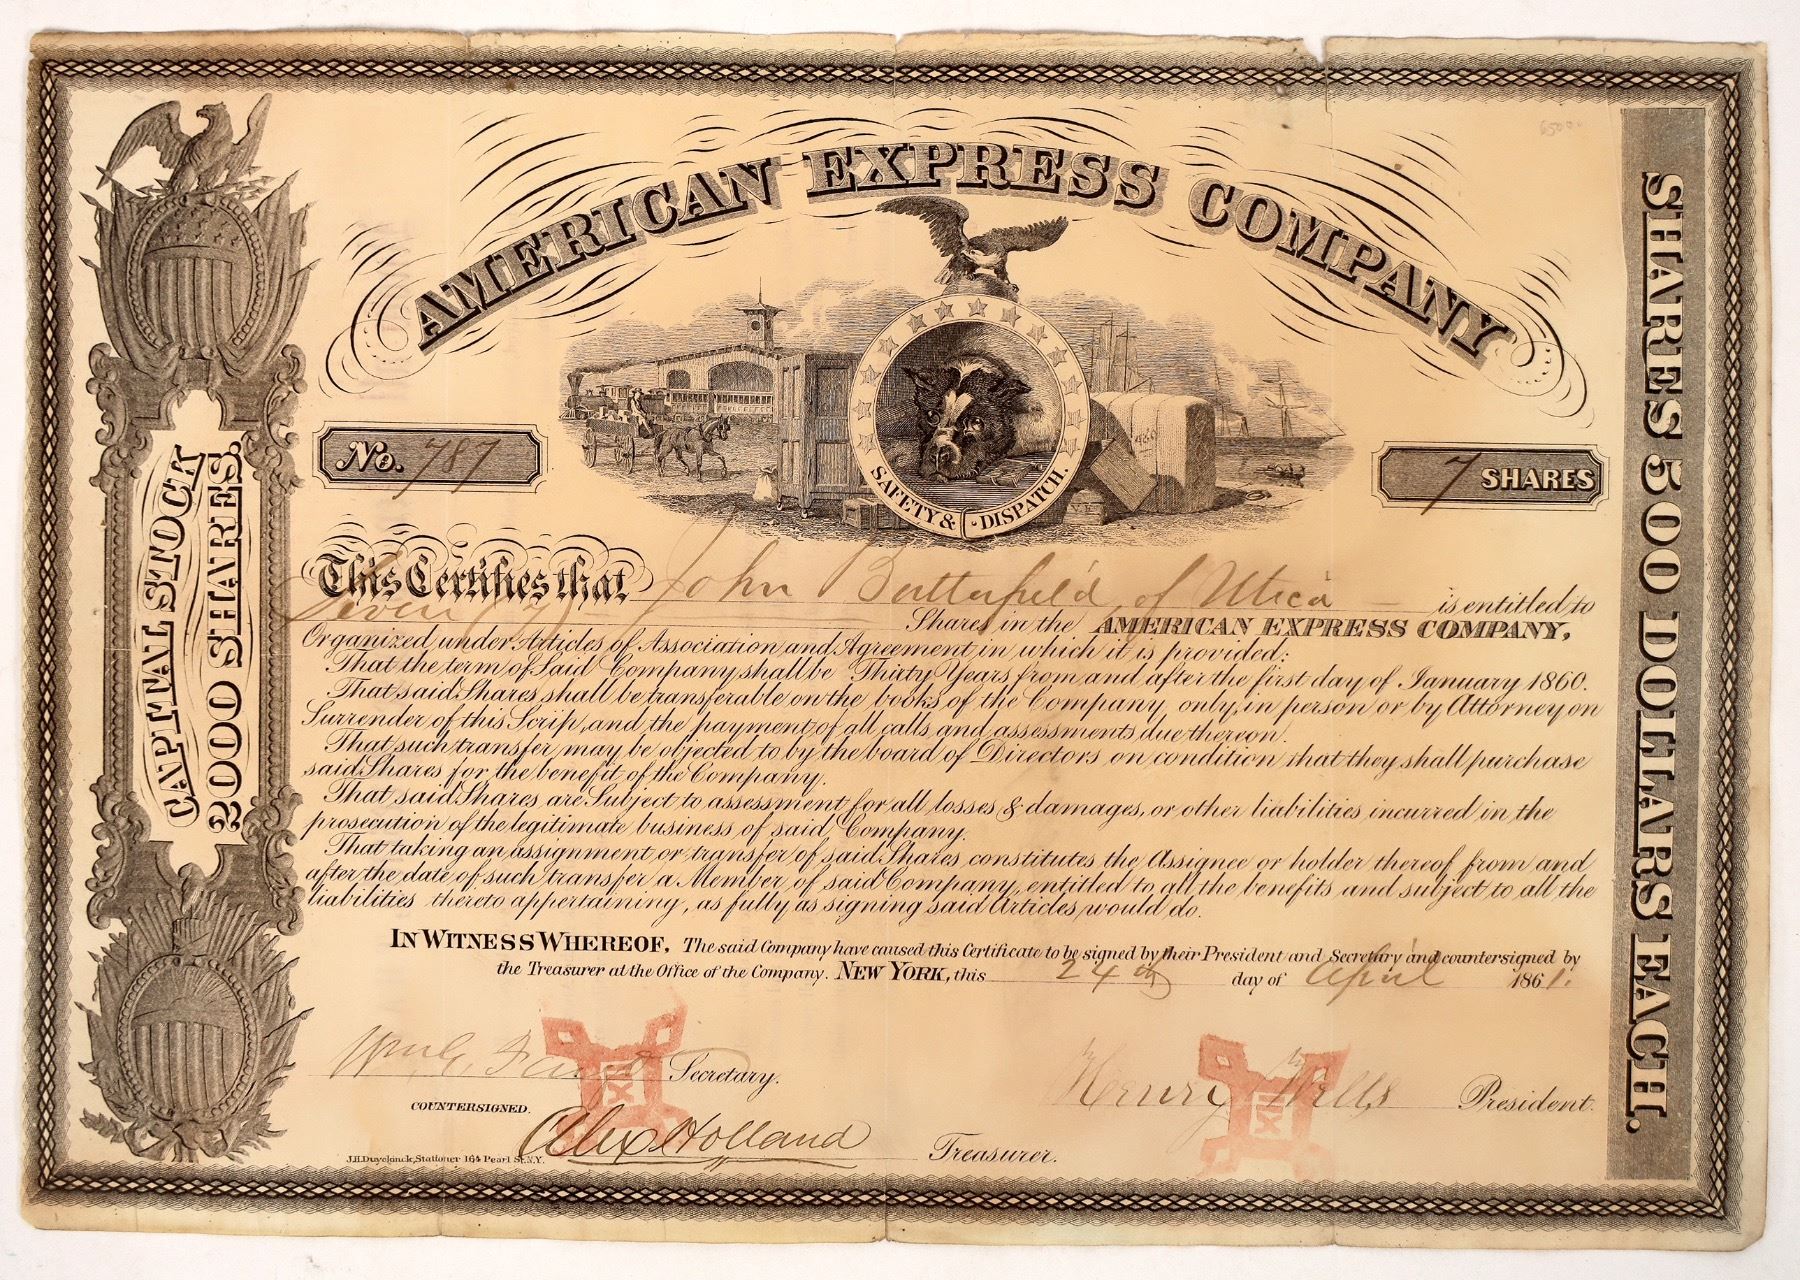 AMERICAN EXPRESS COMPANY
SAFETY & DISPATCH.
No. 787
7 SHARES
CAPITAL STOCK
2000 SHARES.
SHARES 500 DOLLARS EACH.
This Certifies that John Butterfield of Utica is entitled to
Seven (7) Shares in the AMERICAN EXPRESS COMPANY,
Organized under Articles of Association and Agreement in which it is provided:
That the term of Said Company shall be Thirty Years from and after the first day of January 1860.
That said Shares shall be transferable on the books of the Company, only, in person or by Attorney on
Surrender of this Scrip, and the payment of all calls and assessments due thereon.
That such transfer may be objected to by the board of Directors on condition that they shall purchase
said Shares for the benefit of the Company.
That said Shares are Subject to assessment for all losses & damages, or other liabilities incurred in the
prosecution of the legitimate business of said Company.
That taking an assignment or transfer of said Shares constitutes the Assignee or holder thereof from and
after the date of such transfer a Member of said Company, entitled to all the benefits and subject to all the
liabilities thereto appertaining, as fully as signing said Articles would do.
IN WITNESS WHEREOF, The said Company have caused this Certificate to be signed by their President and Secretary and countersigned by
the Treasurer at the Office of the Company. NEW YORK, this 24th day of April 1861.
Wm G. Fargo Secretary.
Henry Wells President.
COUNTERSIGNED.
Alex Holland Treasurer.
J.H. Duyckinck, Stationer 164 Pearl St. N.Y.